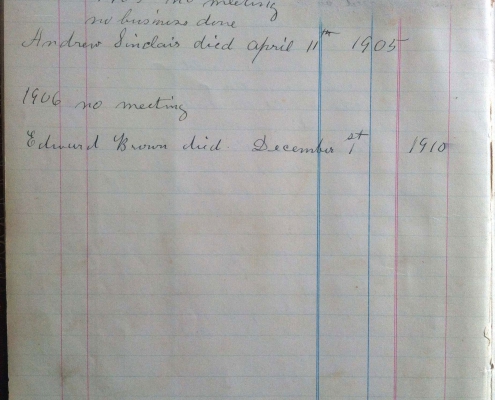 no meeting
no business done
Andrew Sinclair died april 11th 1905
1906 no meeting
Edward Brown died December 1st 1910